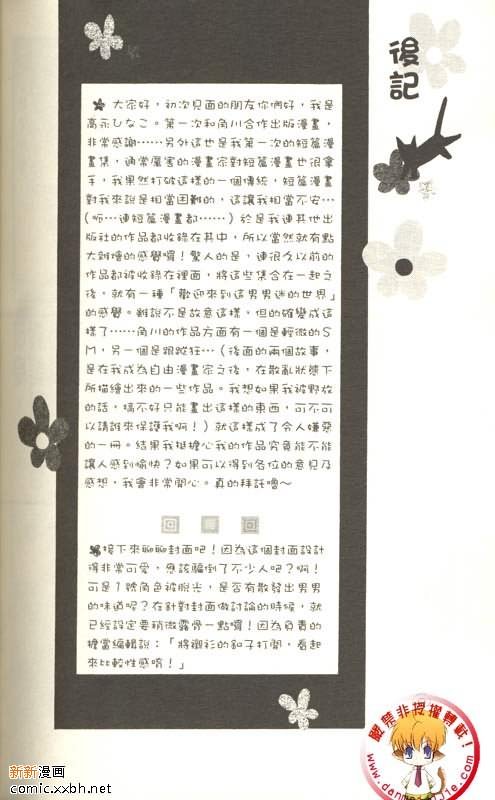 後記
大家好，初次見面的朋友你們好，我是
高永ひなこ。第一次和角川合作出版漫畫，
非常感謝……另外這也是我第一次的短篇漫
畫集，通常厲害的漫畫家對短篇漫畫也很拿
手，我果然打破這樣的一個傳統，短篇漫畫
對我來說是相當困難的，這讓我相當不安…
(呃…連短篇漫畫都……) 於是我連其他出
版社的作品都收錄在其中，所以當然就有點
大雜燴的感覺囉！驚人的是，連很久以前的
作品都被收錄在裡面，將這些集合在一起之
後，就有一種「歡迎來到這男男迷的世界」
的感覺。雖說不是故意這樣，但的確變成這
樣了……角川的作品方面有一個是輕微的S
M，另一個是跟蹤狂…(後面的兩個故事，
是在我成為自由漫畫家之後，在散亂狀態下
所描繪出來的一些作品。我想如果我被野放
的話，搞不好只能畫出這樣的東西，可不可
以請誰來保護我啊！) 就這樣成了令人嫌惡
的一冊。結果我挺擔心我的作品究負能不能
讓人感到愉快？如果可以得到各位的意見及
感想，我會非常開心。真的拜託嚕～
接下來聊聊封面吧！因為這個封面設計
得非常可愛，應該騙倒了不少人吧？啊！
可是1號角色被脫光，是否有散發出男男
的味道呢？在針對封面做討論的時候，就
已經設定要稍微露骨一點嚕！因為負責的
擔當編輯說：「將襯衫的釦子打開，看起
來比較性感唷！」
嚴禁非授權轉載！
新新漫画
comic.xxbh.net